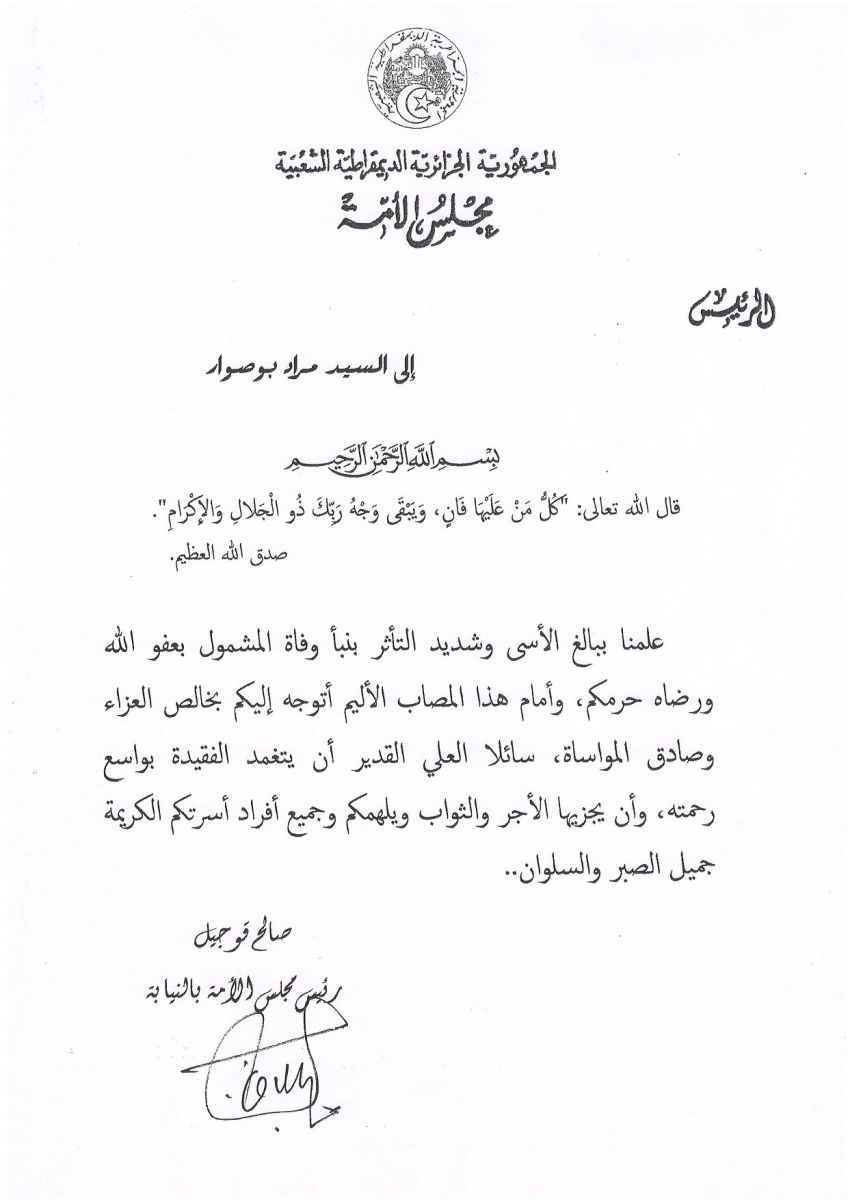 الجمهورية الجزائرية الديمقراطية الشعبية
الجُمْهُورِيّة الجزائريّة الديمقراطيّة الشعْبيّة
مجْلسُ الأمّة
الرئيس
إلى السيد مراد بوصوار
بِسْمِ اللَّهِ الرَّحْمَٰنِ الرَّحِيمِ
قال الله تعالى: "كُلُّ مَنْ عَلَيْهَا فَانٍ، وَيَبْقَى وَجْهُ رَبِّكَ ذُو الْجَلالِ وَالإِكْرَامِ".
صدق الله العظيم.
علمنا ببالغ الأسى وشديد التأثر بنبأ وفاة المشمول بعفو الله
ورضاه حرمكم، وأمام هذا المصاب الأليم أتوجه إليكم بخالص العزاء
وصادق المواساة، سائلا العلي القدير أن يتغمد الفقيدة بواسع
رحمته، وأن يجزيها الأجر والثواب ويلهمكم وجميع أفراد أسرتكم الكريمة
جميل الصبر والسلوان..
صالح قوجيل
رئيس مجلس الأمة بالنيابة